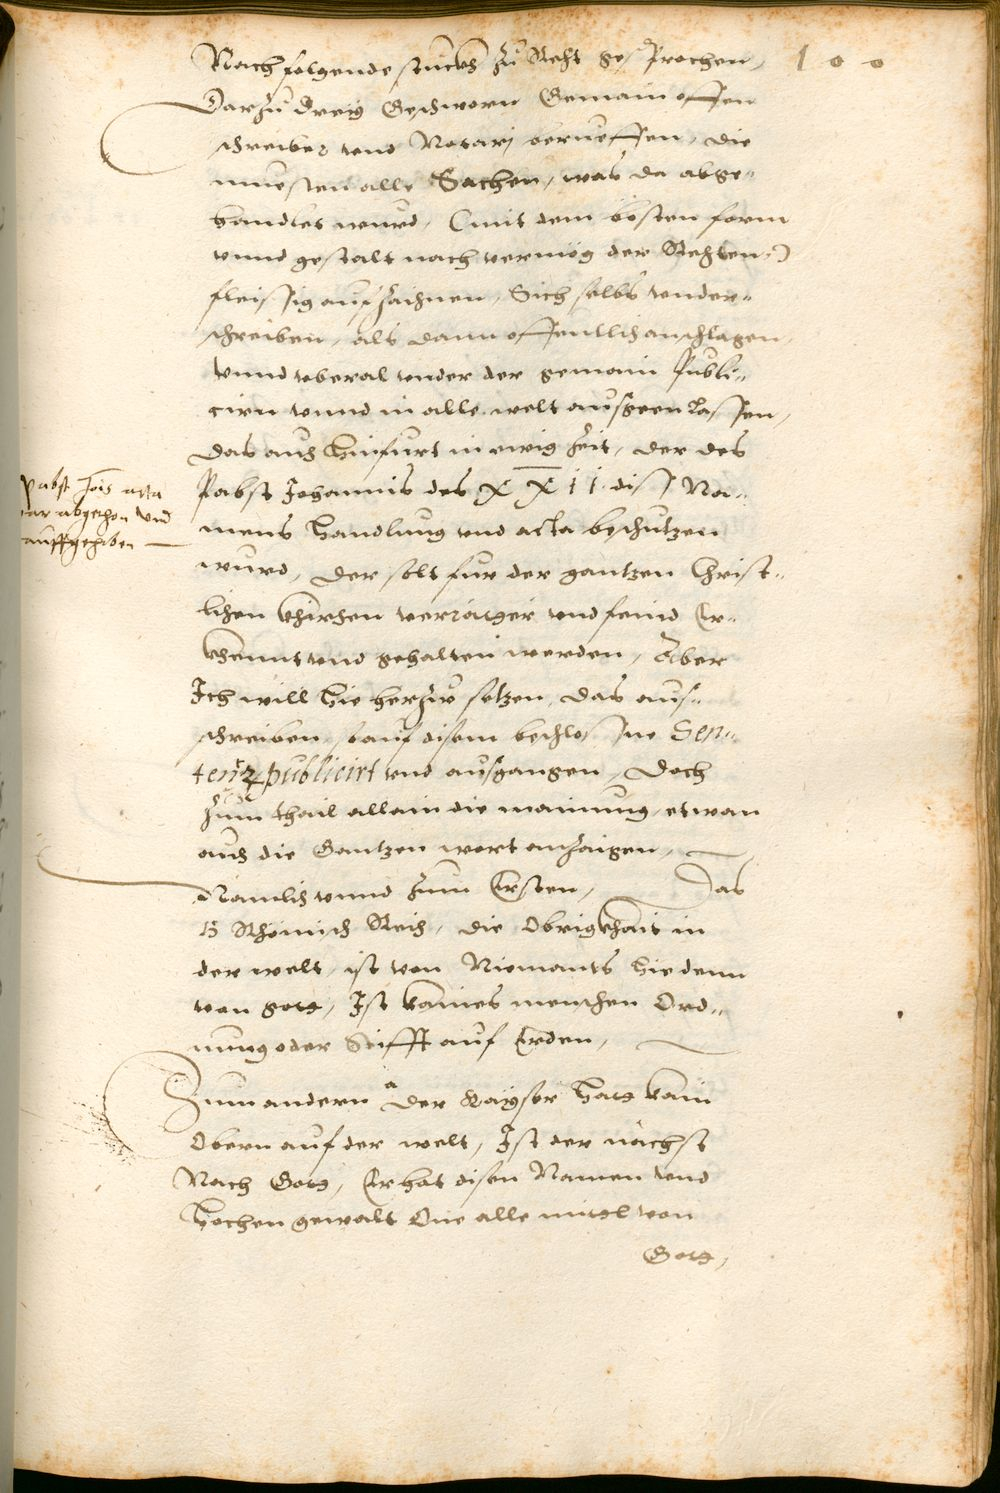 Nach folgende stuckh zu Recht gesprochen, 100
Darzu Dreÿ Geschworn Gemain offen
schreiber vnd Notarj berueffen, die
muesten alle Sachen, was da abge=
handlet wurd, (mit dem besten form
vnnd gestalt nach vermög der Rechten)
fleissig aufzaichnen, Sich selbs vnder=
schreiben, als dann offentlich anschlagen,
vnnd vberal vnder der gemain Publi=
cirn vnnd in alle welt ausgeen lassen,
das auch hinfurt in ewig zeit, der des
Pabst Johannis des XXII. diss Na=
mens handlung vnd acta beschutzen
wurd, der solt fur der gantzen Christ=
lichen khirchen verräther vnd feind Er=
khennt vnd gehalten werden, Aber
Ich will hie herzu setzen, das aus=
schreiben, so auf disem beschlossne Sen=
tentz publicirt vnd ausgangen, Doch
zum thail allain die mainung, etwan
auch die Gantzen wort anzaigen,
Nämlich vnnd zum Ersten, Das
Römisch Reich, die Obrigkhait in
der welt, ist von Niemants hie denn
von gott, Ist kaines menschen Ord=
nung oder Stifft auf Erden,
Zum andern der Kaÿser hatt kain
Obern auf der welt, Ist der nächst
Nach Gott, Er hat disen Namen vnd
hochen gewalt One alle mittl von
Gott,
Pabst Jois acta
abgethon vnd
auffgehaben